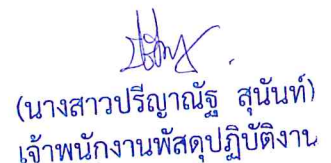 (นางสาวปรีญาณัฐ สุนันท์)
เจ้าพนักงานพัสดุปฏิบัติงาน